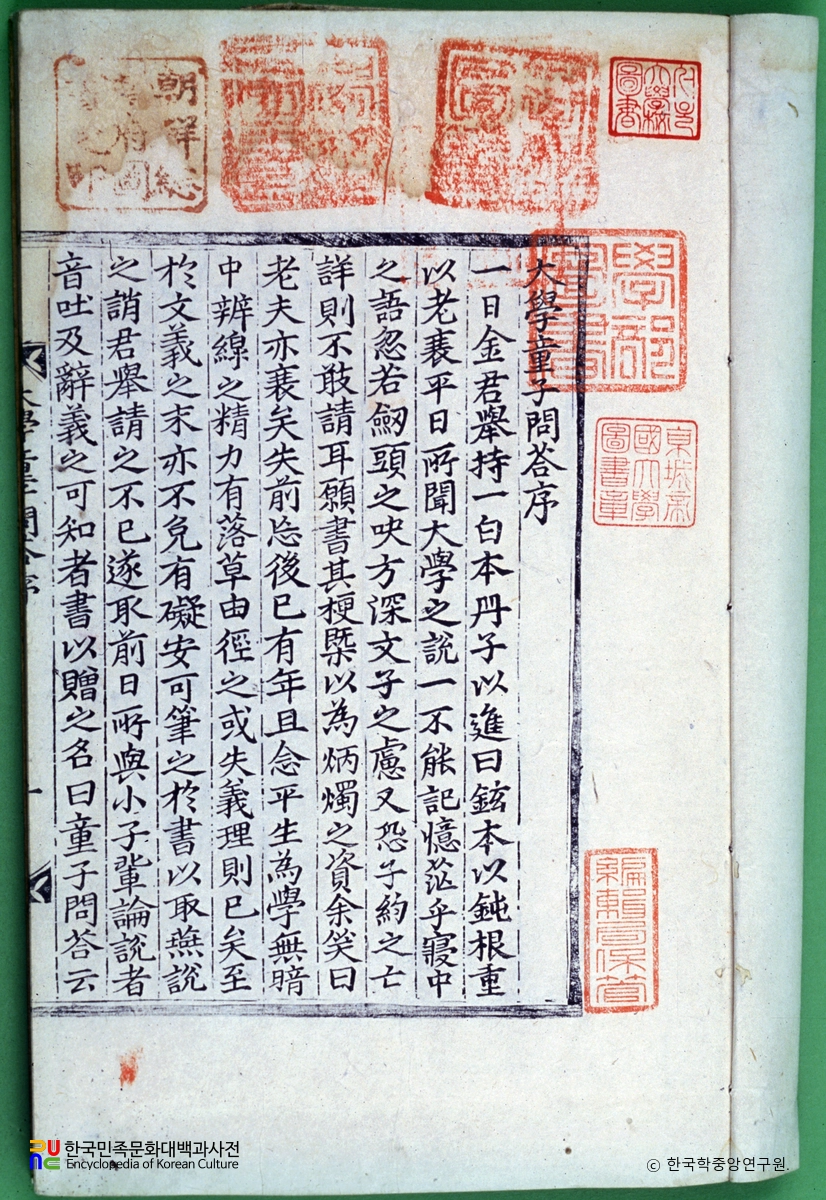 朝鮮總督府圖書之印
大學校圖書
學部圖書
京城帝國大學圖書章
編輯局保管
大學童子問答序
一日金君舉持一白本冊子以進曰鉉本以鈍根重
以老衰平日所聞大學之說一不能記憶茫乎寢中
之語忽若劒頭之吷方深文子之慮又恐子約之亡
詳則不敢請耳願書其梗槩以為炳燭之資余笑曰
老夫亦衰矣失前忘後已有年且念平生為學無暗
中辨線之精力有落草由徑之或失義理則已矣至
於文義之末亦不免有礙安可筆之於書以取燕說
之誚君舉請之不已遂取前日所與小子輩論說者
音吐及辭義之可知者書以贈之名曰童子問答云
大學童子問答序
一
한국민족문화대백과사전
Encyclopedia of Korean Culture
© 한국학중앙연구원.